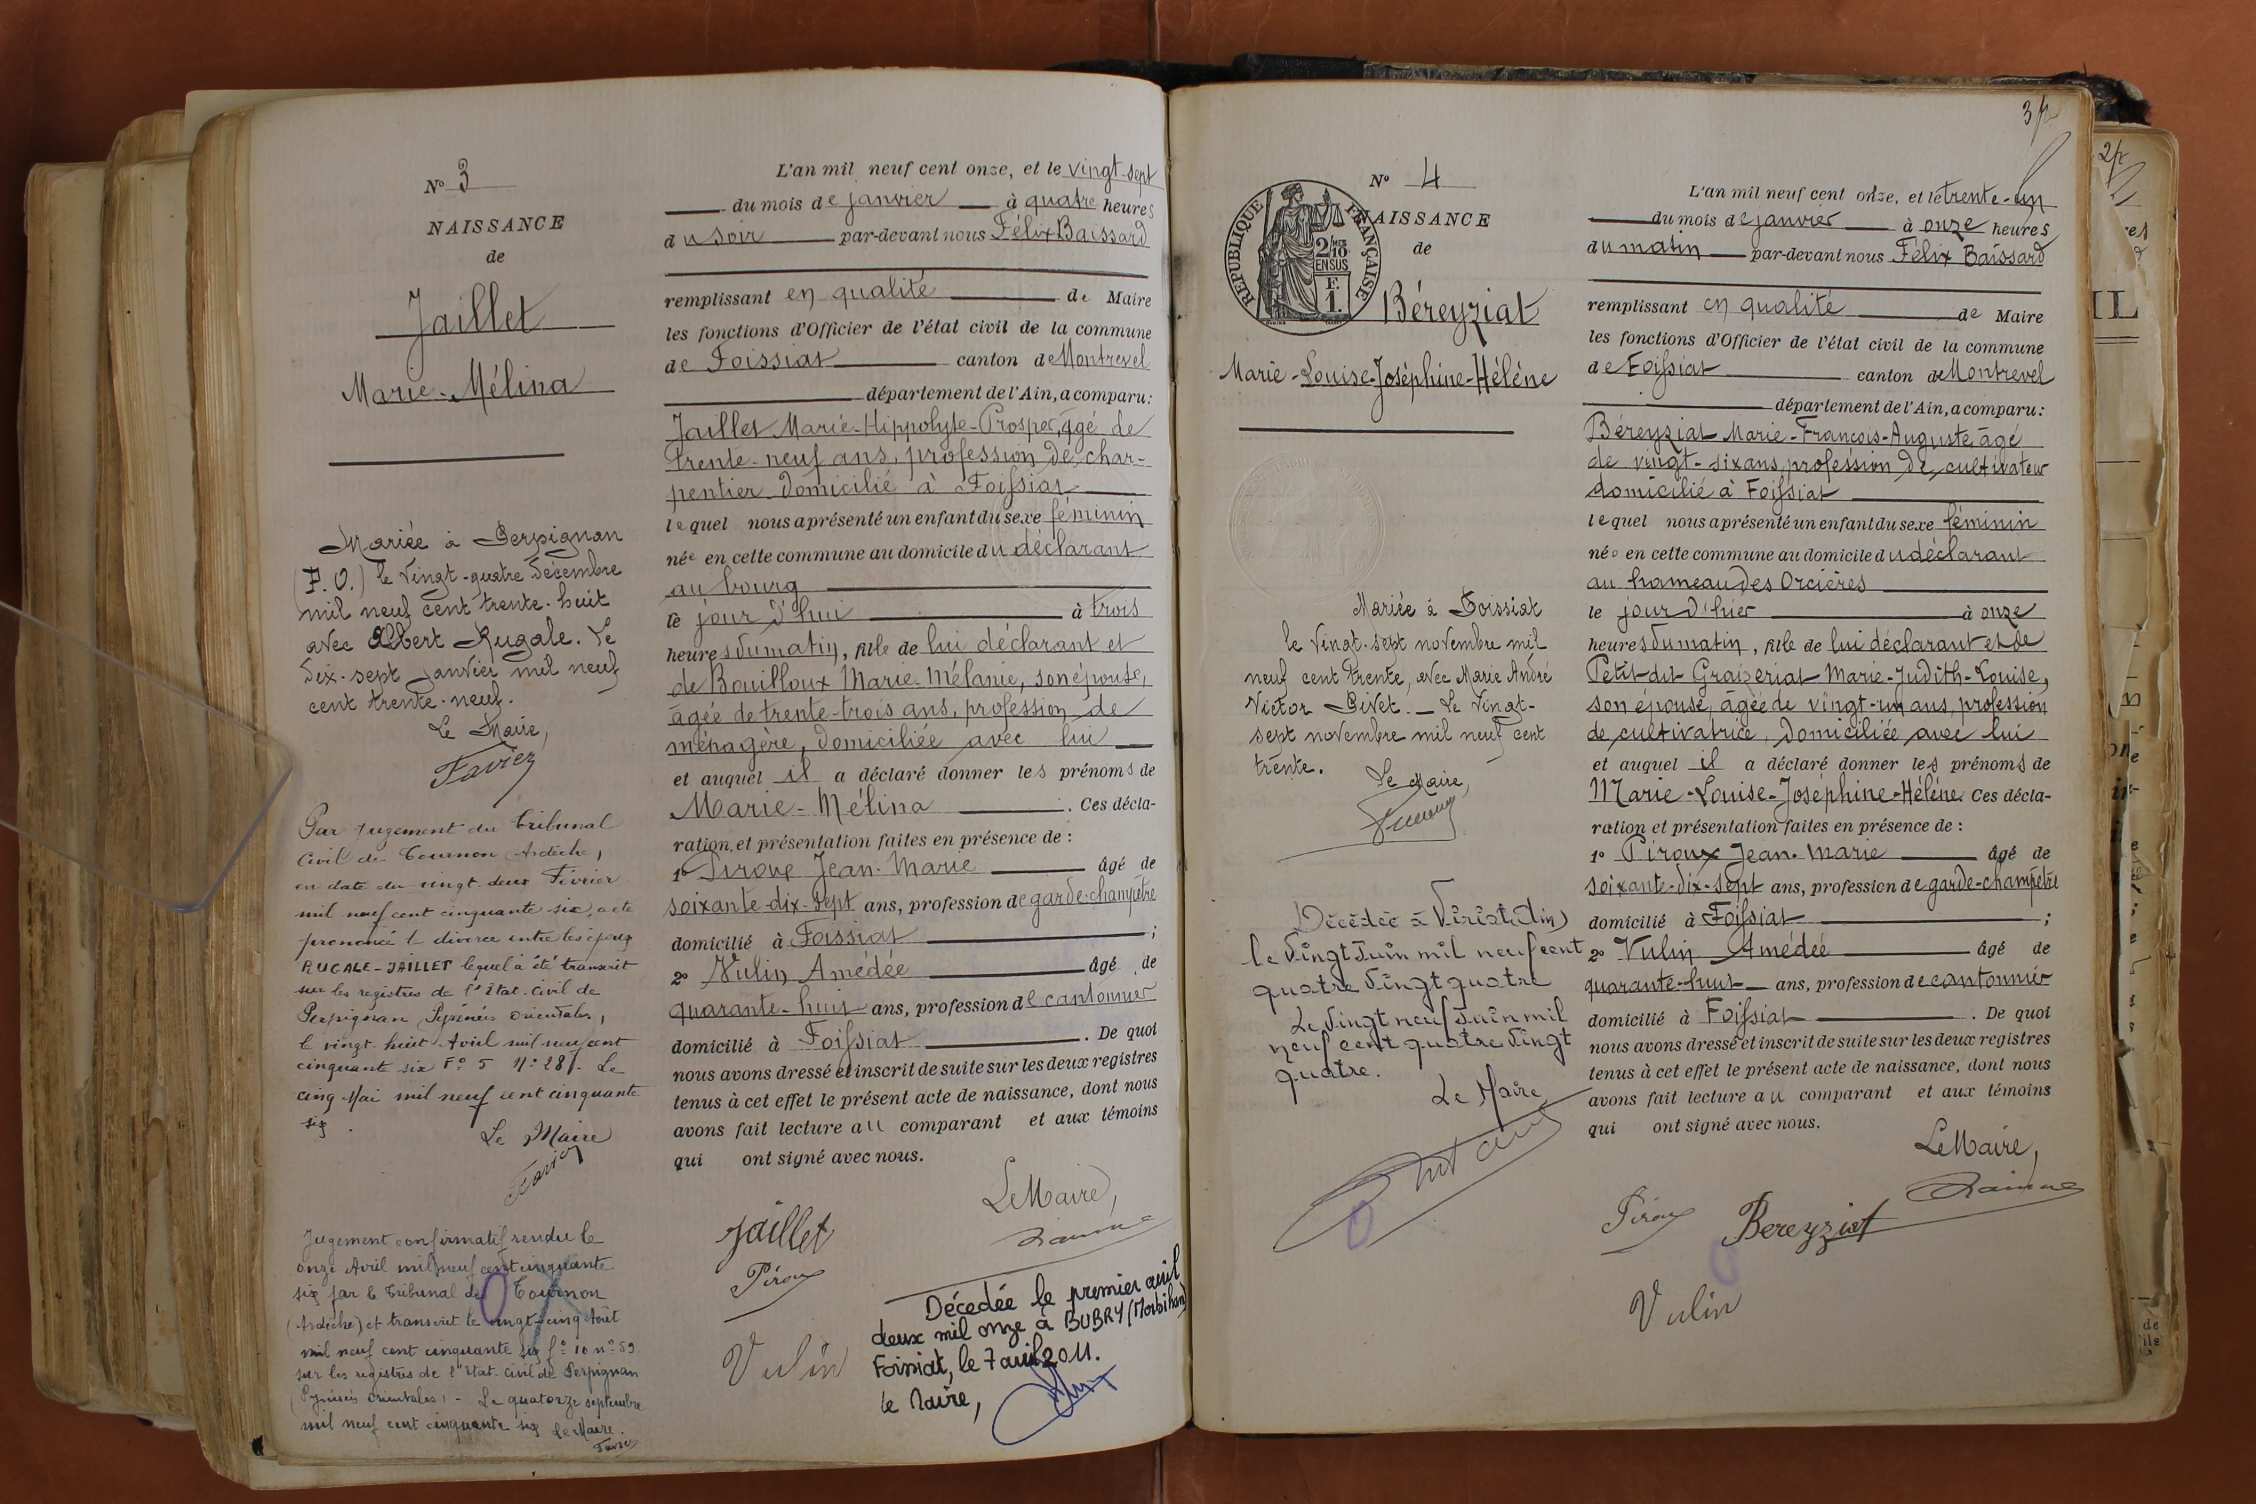 N° 3
NAISSANCE
de
Jaillet
Marie-Mélina
Mariée à Perpignan
(P.O.) le vingt-quatre décembre
mil neuf cent trente-huit
avec Albert Rugale. Le
dix-sept janvier mil neuf
cent trente-neuf.
Le Maire,
Favier
Par jugement du Tribunal
Civil de Tournon Ardèche,
en date du vingt deux Février
mil neuf cent cinquante six, a été
prononcé le divorce entre les époux
RUGALE-JAILLET lequel a été transcrit
sur les registres de l'Etat-civil de
Perpignan, Pyrénées Orientales,
le vingt huit Avril mil neuf cent
cinquante six F° 5 N° 281. Le
cinq Mai mil neuf cent cinquante
six.
Le Maire
Favier
Jugement confirmatif rendu le
onze Avril mil neuf cent cinquante
six par le Tribunal de Tournon
(Ardèche) et transcrit le vingt-cinq Août
mil neuf cent cinquante six f° 10 n° 59
sur les registres de l'Etat-civil de Perpignan
(Pyrénées Orientales) - Le quatorze septembre
mil neuf cent cinquante six Le Maire.
Favier
L'an mil neuf cent onze, et le vingt-sept
du mois de janvier à quatre heures
du soir par-devant nous Félix Baissard
remplissant en qualité de Maire
les fonctions d'Officier de l'état civil de la commune
de Foissiat canton de Montrevel
département de l'Ain, a comparu:
Jaillet Marie-Hippolyte-Prosper, âgé de
trente-neuf ans, profession de char-
pentier domicilié à Foissiat
lequel nous a présenté un enfant du sexe féminin
née en cette commune au domicile du déclarant
au bourg
le jour d'hui à trois
heures du matin, fille de lui déclarant et
de Bouilloux Marie-Mélanie, son épouse,
âgée de trente-trois ans, profession de
ménagère, domiciliée avec lui
et auquel il a déclaré donner les prénoms de
Marie-Mélina. Ces décla-
ration et présentation faites en présence de :
1° Piroux Jean-Marie âgé de
soixante-dix-sept ans, profession de garde-champêtre
domicilié à Foissiat ;
2° Vulin Amédée âgé de
quarante-huit ans, profession de cantonnier
domicilié à Foissiat. De quoi
nous avons dressé et inscrit de suite sur les deux registres
tenus à cet effet le présent acte de naissance, dont nous
avons fait lecture au comparant et aux témoins
qui ont signé avec nous.
Le Maire,
Jaillet
Piroux
Vulin
Décedée le premier avril
deux mil onze à BUBRY (Morbihan)
Foissiat, le 7 avril 2011.
le Maire,
3
2
N° 4
NAISSANCE
de
RÉPUBLIQUE FRANÇAISE
2/10
EN SUS
F.
1.
Béreyziat
Marie-Louise-Joséphine-Hélène
Mariée à Foissiat
le vingt-sept novembre mil
neuf cent trente, avec Marie André
Victor Pivet. - Le vingt-
sept novembre mil neuf cent
trente.
Le Maire,
Décédée à Viriat (Ain)
le vingt Juin mil neuf cent
quatre vingt quatre
Le vingt neuf Juin mil
neuf cent quatre vingt
quatre.
Le Maire
L'an mil neuf cent onze, et le trente-un
du mois de janvier à onze heures
du matin par-devant nous Félix Baissard
remplissant en qualité de Maire
les fonctions d'Officier de l'état civil de la commune
de Foissiat canton de Montrevel
département de l'Ain, a comparu:
Béreyziat Marie-François-Auguste, âgé
de vingt-six ans, profession de cultivateur
domicilié à Foissiat
lequel nous a présenté un enfant du sexe féminin
née en cette commune au domicile du déclarant
au hameau des Orcières
le jour d'hier à onze
heures du matin, fille de lui déclarant et de
Petit-dit Graizeriat Marie-Judith-Louise,
son épouse, âgée de vingt-un ans, profession
de cultivatrice, domiciliée avec lui
et auquel il a déclaré donner les prénoms de
Marie-Louise-Joséphine-Hélène. Ces décla-
ration et présentation faites en présence de :
1° Piroux Jean-Marie âgé de
soixante-dix-sept ans, profession de garde-champêtre
domicilié à Foissiat ;
2° Vulin Amédée âgé de
quarante-huit ans, profession de cantonnier
domicilié à Foissiat. De quoi
nous avons dressé et inscrit de suite sur les deux registres
tenus à cet effet le présent acte de naissance, dont nous
avons fait lecture au comparant et aux témoins
qui ont signé avec nous.
Le Maire,
Piroux
Bereyziat
Vulin